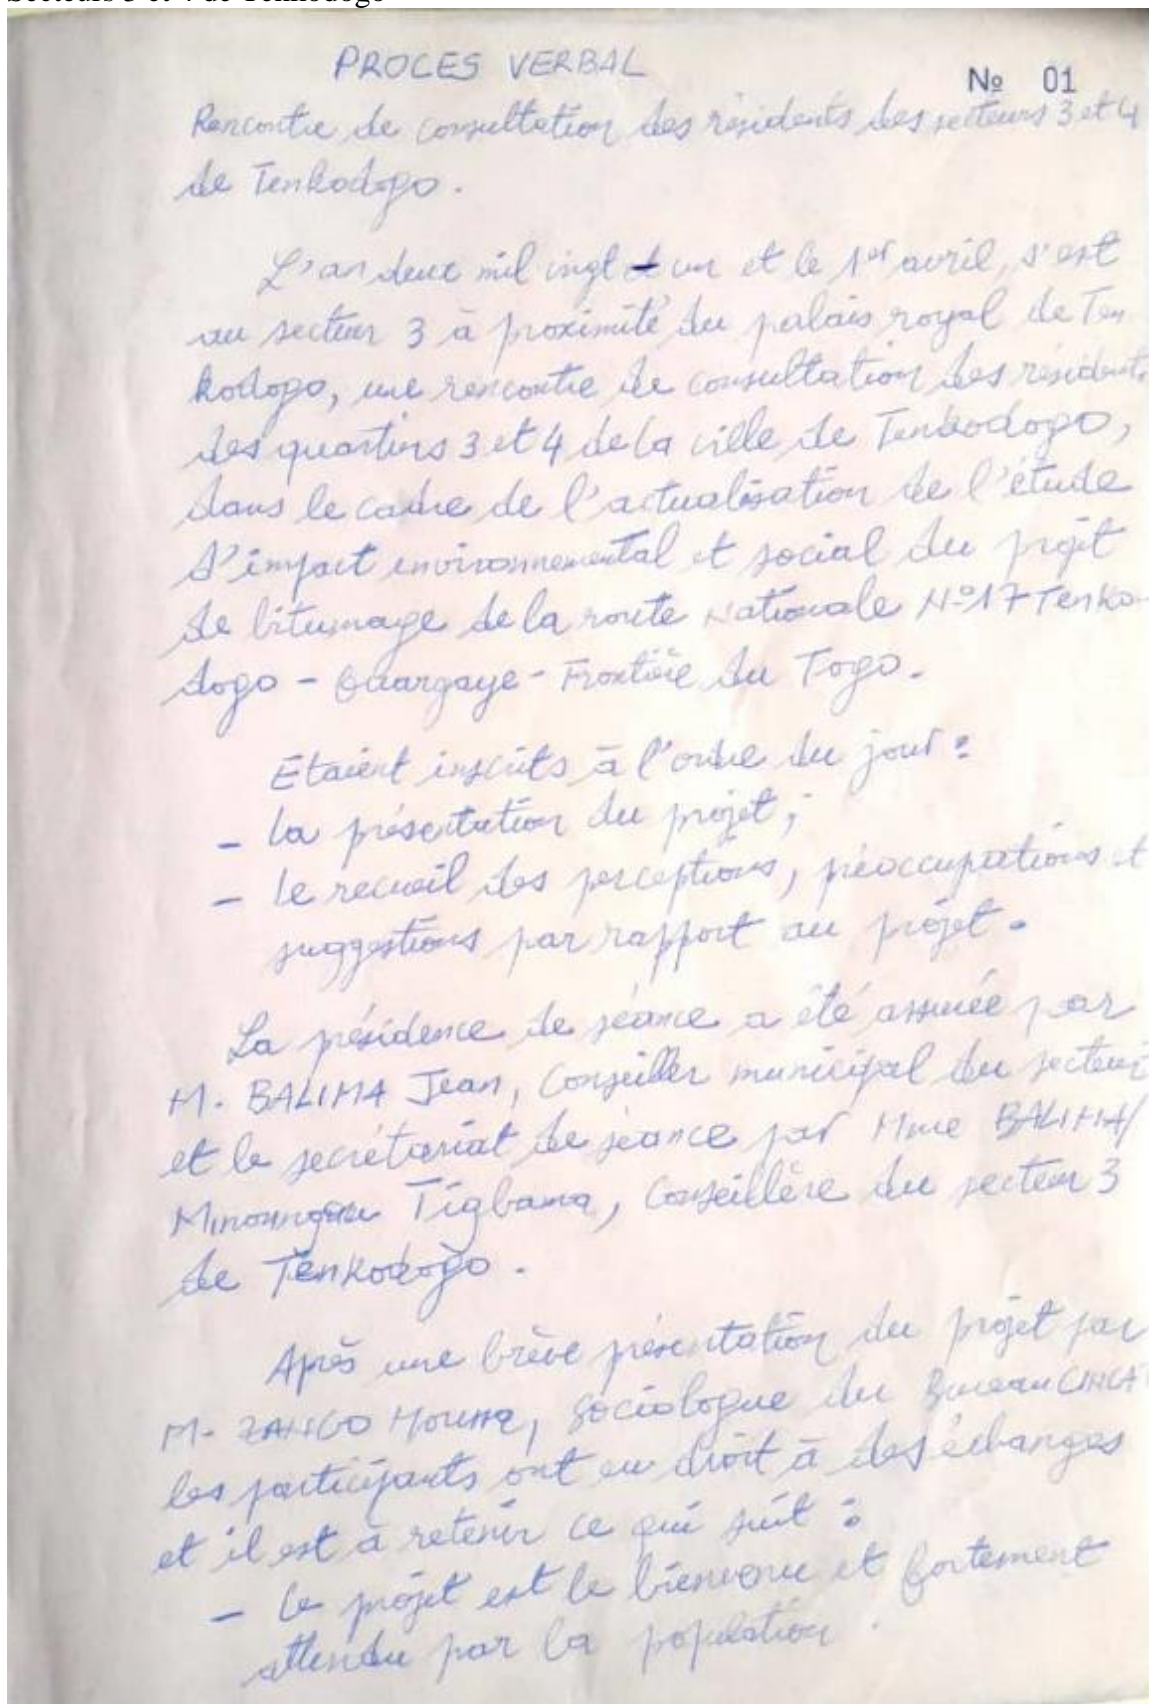 Secteurs 3 et 4 de Tenkodogo
PROCES VERBAL
№ 01
Rencontre de consultation des résidents des secteurs 3 et 4
de Tenkodogo.
L'an deux mil vingt et un et le 1er avril, s'est
au secteur 3 à proximité du palais royal de Ten
kodogo, une rencontre de consultation des résidents
des quartiers 3 et 4 de la ville de Tenkodogo,
dans le cadre de l'actualisation de l'étude
d'impact environnemental et social du projet
de bitumage de la route Nationale N°17 Tenko-
dogo - Ouargaye - Frontière du Togo.
Etaient inscrits à l'ordre du jour :
- la présentation du projet ;
- le recueil des perceptions, préoccupations et
suggestions par rapport au projet.
La présidence de séance a été assurée par
M. BALIMA Jean, Conseiller municipal du secteur
et le secrétariat de séance par Mme BALIMA/
Tigbama, Conseillère du secteur 3
de Tenkodogo.
Après une brève présentation du projet par
M. ZANGO Moussa, Sociologue du Bureau
les participants ont eu droit à des échanges
et il est à retenir ce qui suit :
- le projet est le bienvenu et fortement
attendu par la population.